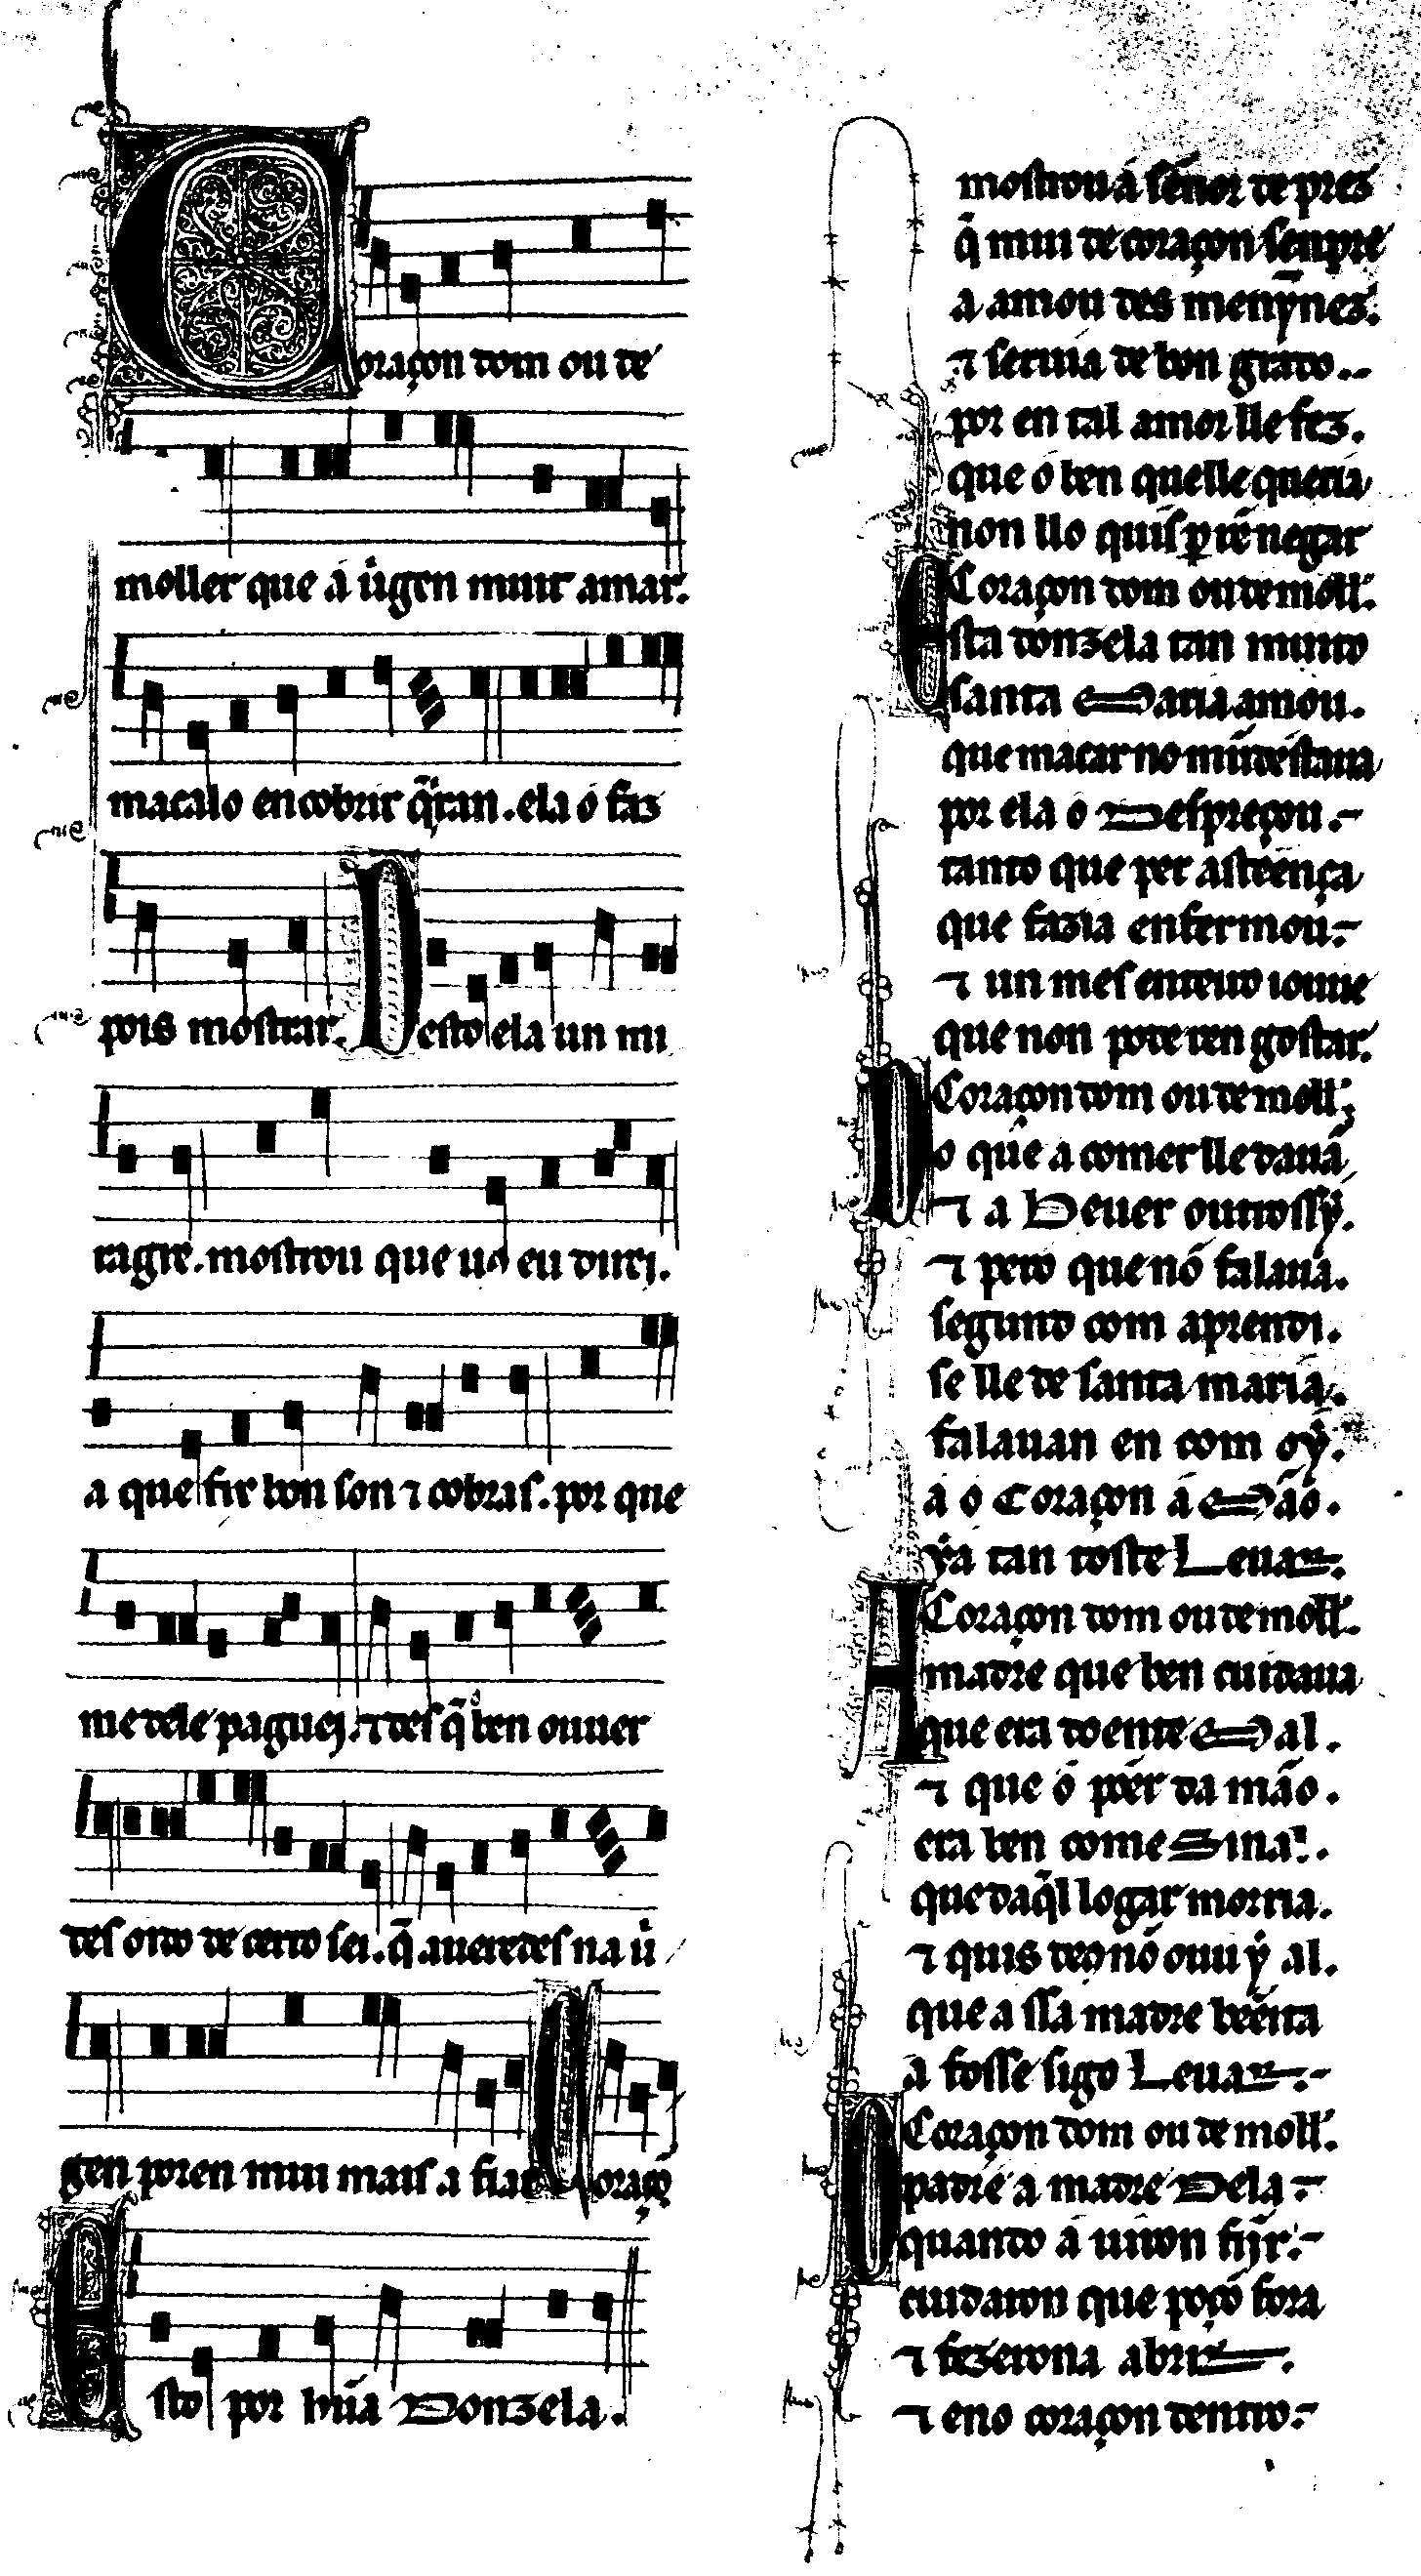 Coraçon dom ou de
moller que á uigen muit amar.
macalo encobrir q̃iran. ela ó faz
pois mostrar. Desto ela un mi
ragre. mostrou que uos eu direi.
a que fix bon son ⁊ cobras. por que
me dele paguei. ⁊ des q̃ o ben ouuer
des oydo de certo sei. q̃. aueredes na ui
gen poren mui mais a fiar Coraçõ
Esto por hũa Donzela.
mostrou á sẽnor de prez
q̃ mui de coraçon senpre
a amou des menỹnez.
⁊ seruia de bon grado.
por en tal amor lle fez.
que ó ben quelle queria
non llo quis per rẽ negar
Coraçon dom ou de moll.
Esta donzela tan muito
santa Maria amou.
que macar no mũd estaua
por ela o Despreçou.
tanto que per asteença
que fazia enfermou.
⁊ un mes enteiro iouue
que non pode ren gostar.
Coraçon dom ou de moll.
Do que a comer lle dauã
⁊ a Beuer outrossy.
⁊ pero que nõ falaua.
segundo com aprendi.
se lle de santa maria.
falauan en com oý.
á o Coraçon á Mão.
ya tan toste Leuar.
Coraçon dom ou de moll.
A madre que ben cuidaua
que era doente Mal.
⁊ que ó poer da mão.
era ben come Sinal.
que daq̃l logar morria.
⁊ quis deo nõ ouu ý al.
que a ssa madre beeita
a fosse sigo Leuar.
Coraçon dom ou de moll.
O padre a madre Dela
quando á uiron fijr.
cuidaron que poçõ fora
⁊ fezerona abrir.
⁊ eno coraçon dentro